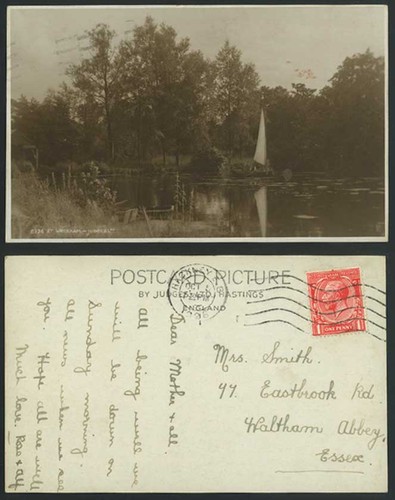 POSTCARD PICTURE
BY JUDGES LTD, HASTINGS
ENGLAND
ONE PENNY
Dear Mother & all.
all being well we
will be down on
Sunday morning.
all news when we see
you. Hope all are well
Much love. Rae & Alf
Mrs. Smith.
47. Eastbrook Rd.
Waltham Abbey.
Essex.